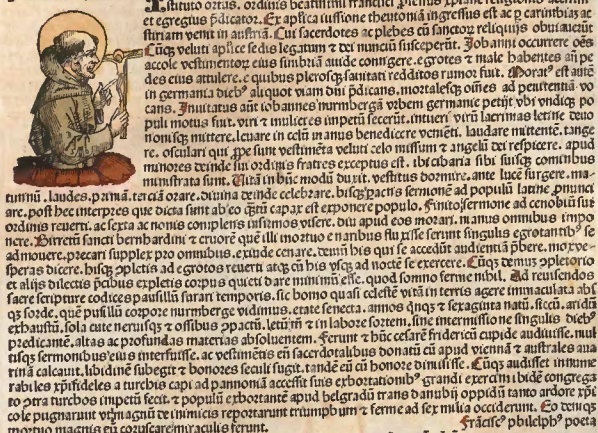 Instituto ortus. ordinis beatissimi francisci plenus xp̄iane religionis
et egregius p̄dicator. Ex aplīca iussione theutoniā ingressus est ac ꝑ carinthias ac
stiriam venit in austriā. Cui sacerdotes ac plebes cū sanctoꝝ reliquijs obuiauerūt
Cūqꝫ veluti aplīce sedis legatum ⁊ dei nunciū susceperūt. Johanni occurrere oēs
accole vestimentoꝝ eius fimbriā auide contigere. egrotes ⁊ male habentes an̄ pe
des eius attulere. e quibus plerosqꝫ sanitati redditos rumor fuit. Moratꝰ est autē
in germania diebꝰ aliquot viam dn̄i p̄dicans. mortalesqꝫ oīnes ad penitentiā vo
cans. Inuitatus aūt iohannes nurmbergā vrbem germanie petijt vbi vndiqꝫ po
puli motus fuit. viri ⁊ mulieres impetū fecerūt. intueri virū lacrimas letine deuo
nonisqꝫ mittere. leuare in celū manus benedicere venīeti. laudare mittentē. tange
re. osculari qui ꝓpe sunt vestimēta veluti celo missum ⁊ angelū dei respicere. apud
minores deinde sui ordinis fratres exceptus est. ibi cibaria sibi suisqꝫ comitibus
ministrata sunt. Uitā in hūc modū duxit. vestitus dormire. ante lucē surgere. ma
tutinū. laudes. primā. terciā orare. diuina deinde celebrare. bisqꝫ pacis sermonē ad populū latine ꝓnunci
are. post hec interpres que dicta sunt ab eo qᷓtū capax est exponere populo. Finito sermone ad cenobiū sui
ordinis reuerti. ac sexta ac nonis complens infirmos visere. diu apud eos morari. manus omnibus impo
nere. Birretū sancti bernhardini ⁊ cruorē que illi mortuo e naribus fluxisse ferunt singulis egrotantibꝰ se
admouere. precari supplex pro omnibus. exinde cenare. demū his qui se accedūt audientiā p̄bere. mox ve
speras dicere. hisqꝫ ꝯpletis ad egrotos reuerti atqꝫ cū his vsqꝫ ad noctē se exercere. Cūqꝫ demus ꝯpletorio
et alijs dilectis p̄cibus expletis corpus quieti dare minimū esse. quod somno ferme nihil. Ad reuisendos
sacre scripture codices pausillū furari temporis. sic homo quasi celestē vitā in terris agere immaculata abs
qꝫ sorde. quē pusillū corpore nurmberge vidimus. etate senecta. annos qͥnqꝫ ⁊ sexaginta natū. siccū. aridū
exhaustū. sola cute neruisqꝫ ⁊ ossibus ꝯpactū. letum̄ ⁊ in labore fortem. sine intermissione singulis diebꝰ
predicantē. altas ac profundas materias absoluentem. Ferunt ⁊ hūc cesarē fridericū cupide audiuisse. mul
tisqꝫ sermonibus eius interfuisse. ac vestimētis eū sacerdotalibus donatū cū apud viennā ⁊ australes aua
riciā calcauit. libidinē subegit ⁊ honores seculi fugit. tandē eū cū honore dimisisse. Cūqꝫ audisset innume
rabiles xp̄ifideles a turchis capi ad pannoniā accessit suis exhortationibꝰ grandi exercitu ibidē congrega
to ꝯtra turchos impetū fecit. ⁊ populū exhortantē apud belgradū trans danubij oppidū tanto ardore xp̄i
cole pugnarunt vt magnū de inimicis reportarunt triumphum ⁊ ferme ad sex milia occiderunt. Eo deniqꝫ
mortuo magnis eū coruscare miraculis ferunt.
Frāciscꝰ philelphꝰ poeta